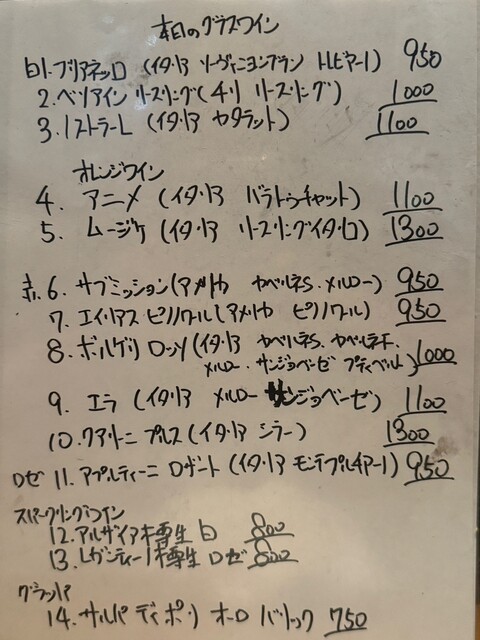 本日のグラスワイン
白1. ブリアネッロ (イタリア ソーヴィニヨンブラン トレビアーノ) 950
2. ベソアイン リースリング (チリ リースリング) 1000
3. ノストラーレ (イタリア カタラット) 1100
オレンジワイン
4. アニメ (イタリア バラトゥチャット) 1100
5. ムージケ (イタリア リースリングイタリコ) 1300
赤 6. サブミッション (アメリカ カベルネS. メルロー) 950
7. エイリアス ピノノワール (アメリカ ピノノワール) 950
8. ボルゲリ ロッソ (イタリア カベルネS. カベルネF.
メルロー. サンジョベーゼ プティベルド) 1000
9. エラ (イタリア メルロー サンジョベーゼ) 1100
10. クアリーニ プルス (イタリア シラー) 1300
ロゼ 11. アプルティーニ ロザート (イタリア モンテプルチアーノ) 950
スパークリングワイン
12. アルザイア 樽生 白 800
13. レガンティーノ 樽生 ロゼ 800
グラッパ
14. サルパ ディ ポリ オーロ バリック 750